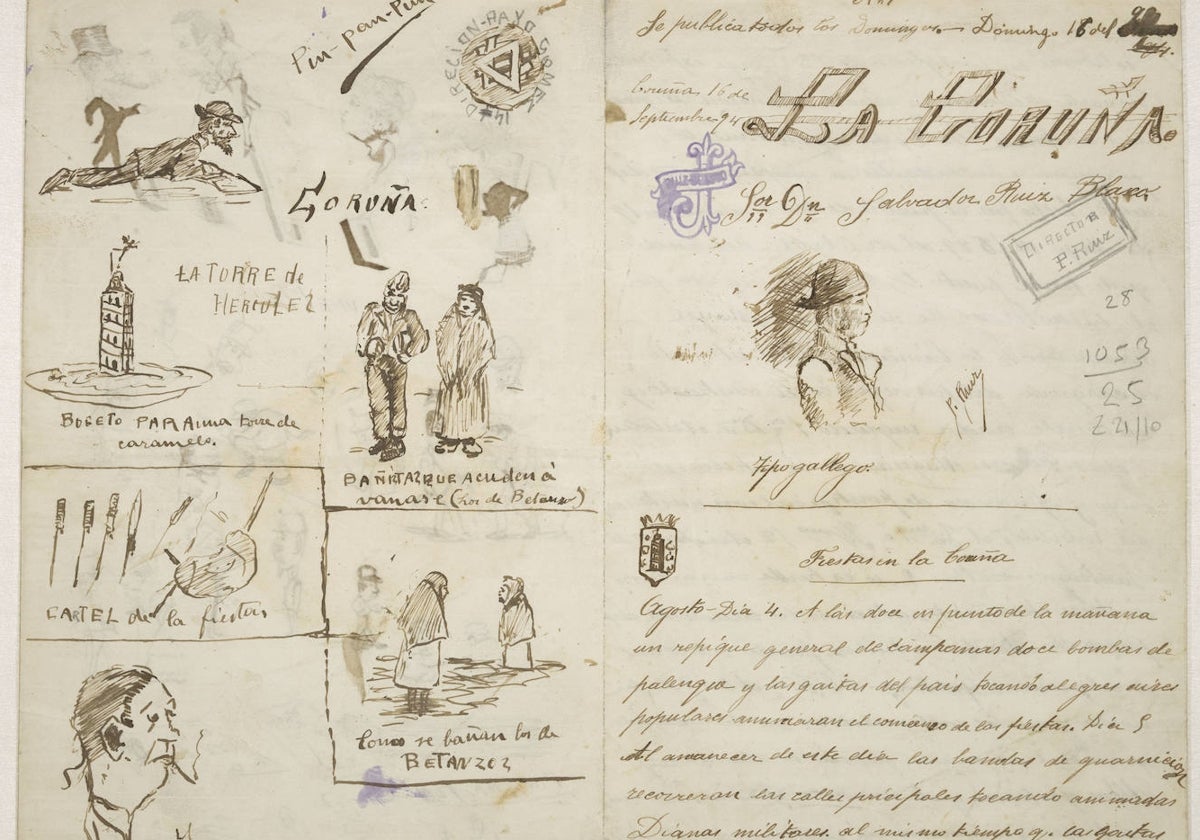 Pin-pan-Pun
DIRECION-PAYO GOMEZ 14
CORUÑA.
LA TORRE de
HERCULEZ
BOCETO PARA una torre de
caramelo.
BAÑITAZ QUE acuden á
vanarse (los de Betanzo)
CARTEL de la fiestas
Como se bañan los de
BETANZOZ
Se publica todos los Domingos — Domingo 16 del
Coruña 16 de
Septiembre 94
LA CORUÑA.
Sor Dn Salvador Ruiz Blasco
DIRECTOR
P. Ruiz
28
1053
25
Z 21/10
P. Ruiz
Tipo gallego.
Fiestas en la Coruña
Agosto-Dia 4. A las doce en punto de la mañana
un repique general de campanas doce bombas de
palenque y las gaitas del pais tocando alegres aires
populares anunciaran el comienzo de las fiestas. Dia 5
Al amanecer de este dia las bandas de guarnicion
recorreran las calles pricipales tocando animadas
Dianas militares. al mismo tiempo q. las gaitas